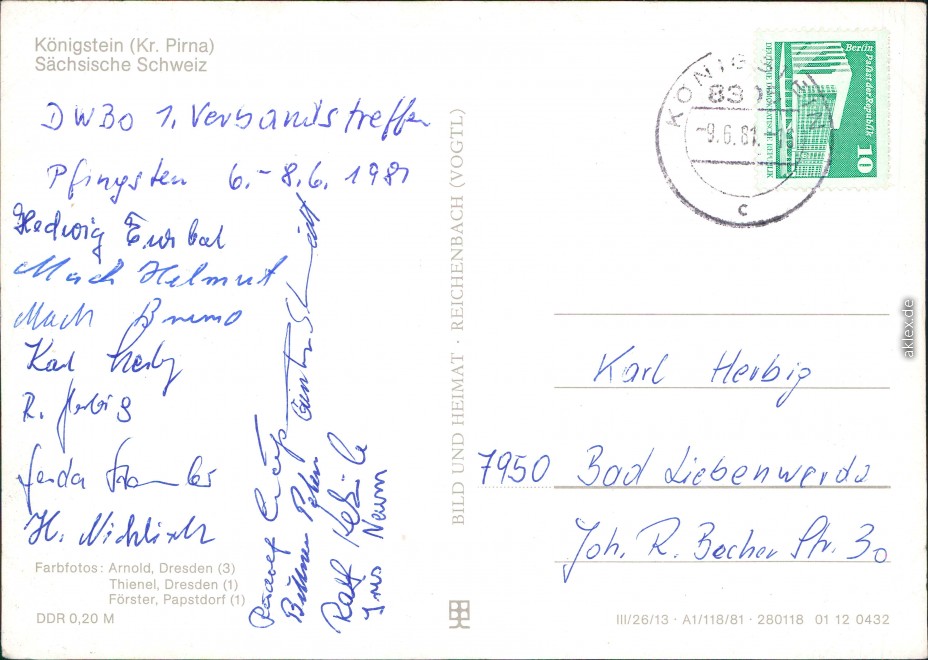 Königstein (Kr. Pirna)
Sächsische Schweiz
DWBO 1. Verbandstreffen
Pfingsten 6.-8.6. 1981
Hedwig
Mach Helmut
Mach Bruno
Karl Herbig
R. Herbig
H. Nichlisch
Rudolf
Peter
Ralf
Iris Neum
Farbfotos: Arnold, Dresden (3)
Thienel, Dresden (1)
Förster, Papstdorf (1)
DDR 0,20 M
BILD UND HEIMAT · REICHENBACH (VOGTL)
KÖNIGSTEIN
83
-9.6.81
c
Berlin Palast der Republik
DEUTSCHE DEMOKRATISCHE REPUBLIK
10
Karl Herbig
7950 Bad Liebenwerda
Joh. R. Becher Str. 30
III/26/13 · A1/118/81 · 280118 01 12 0432
aklex.de